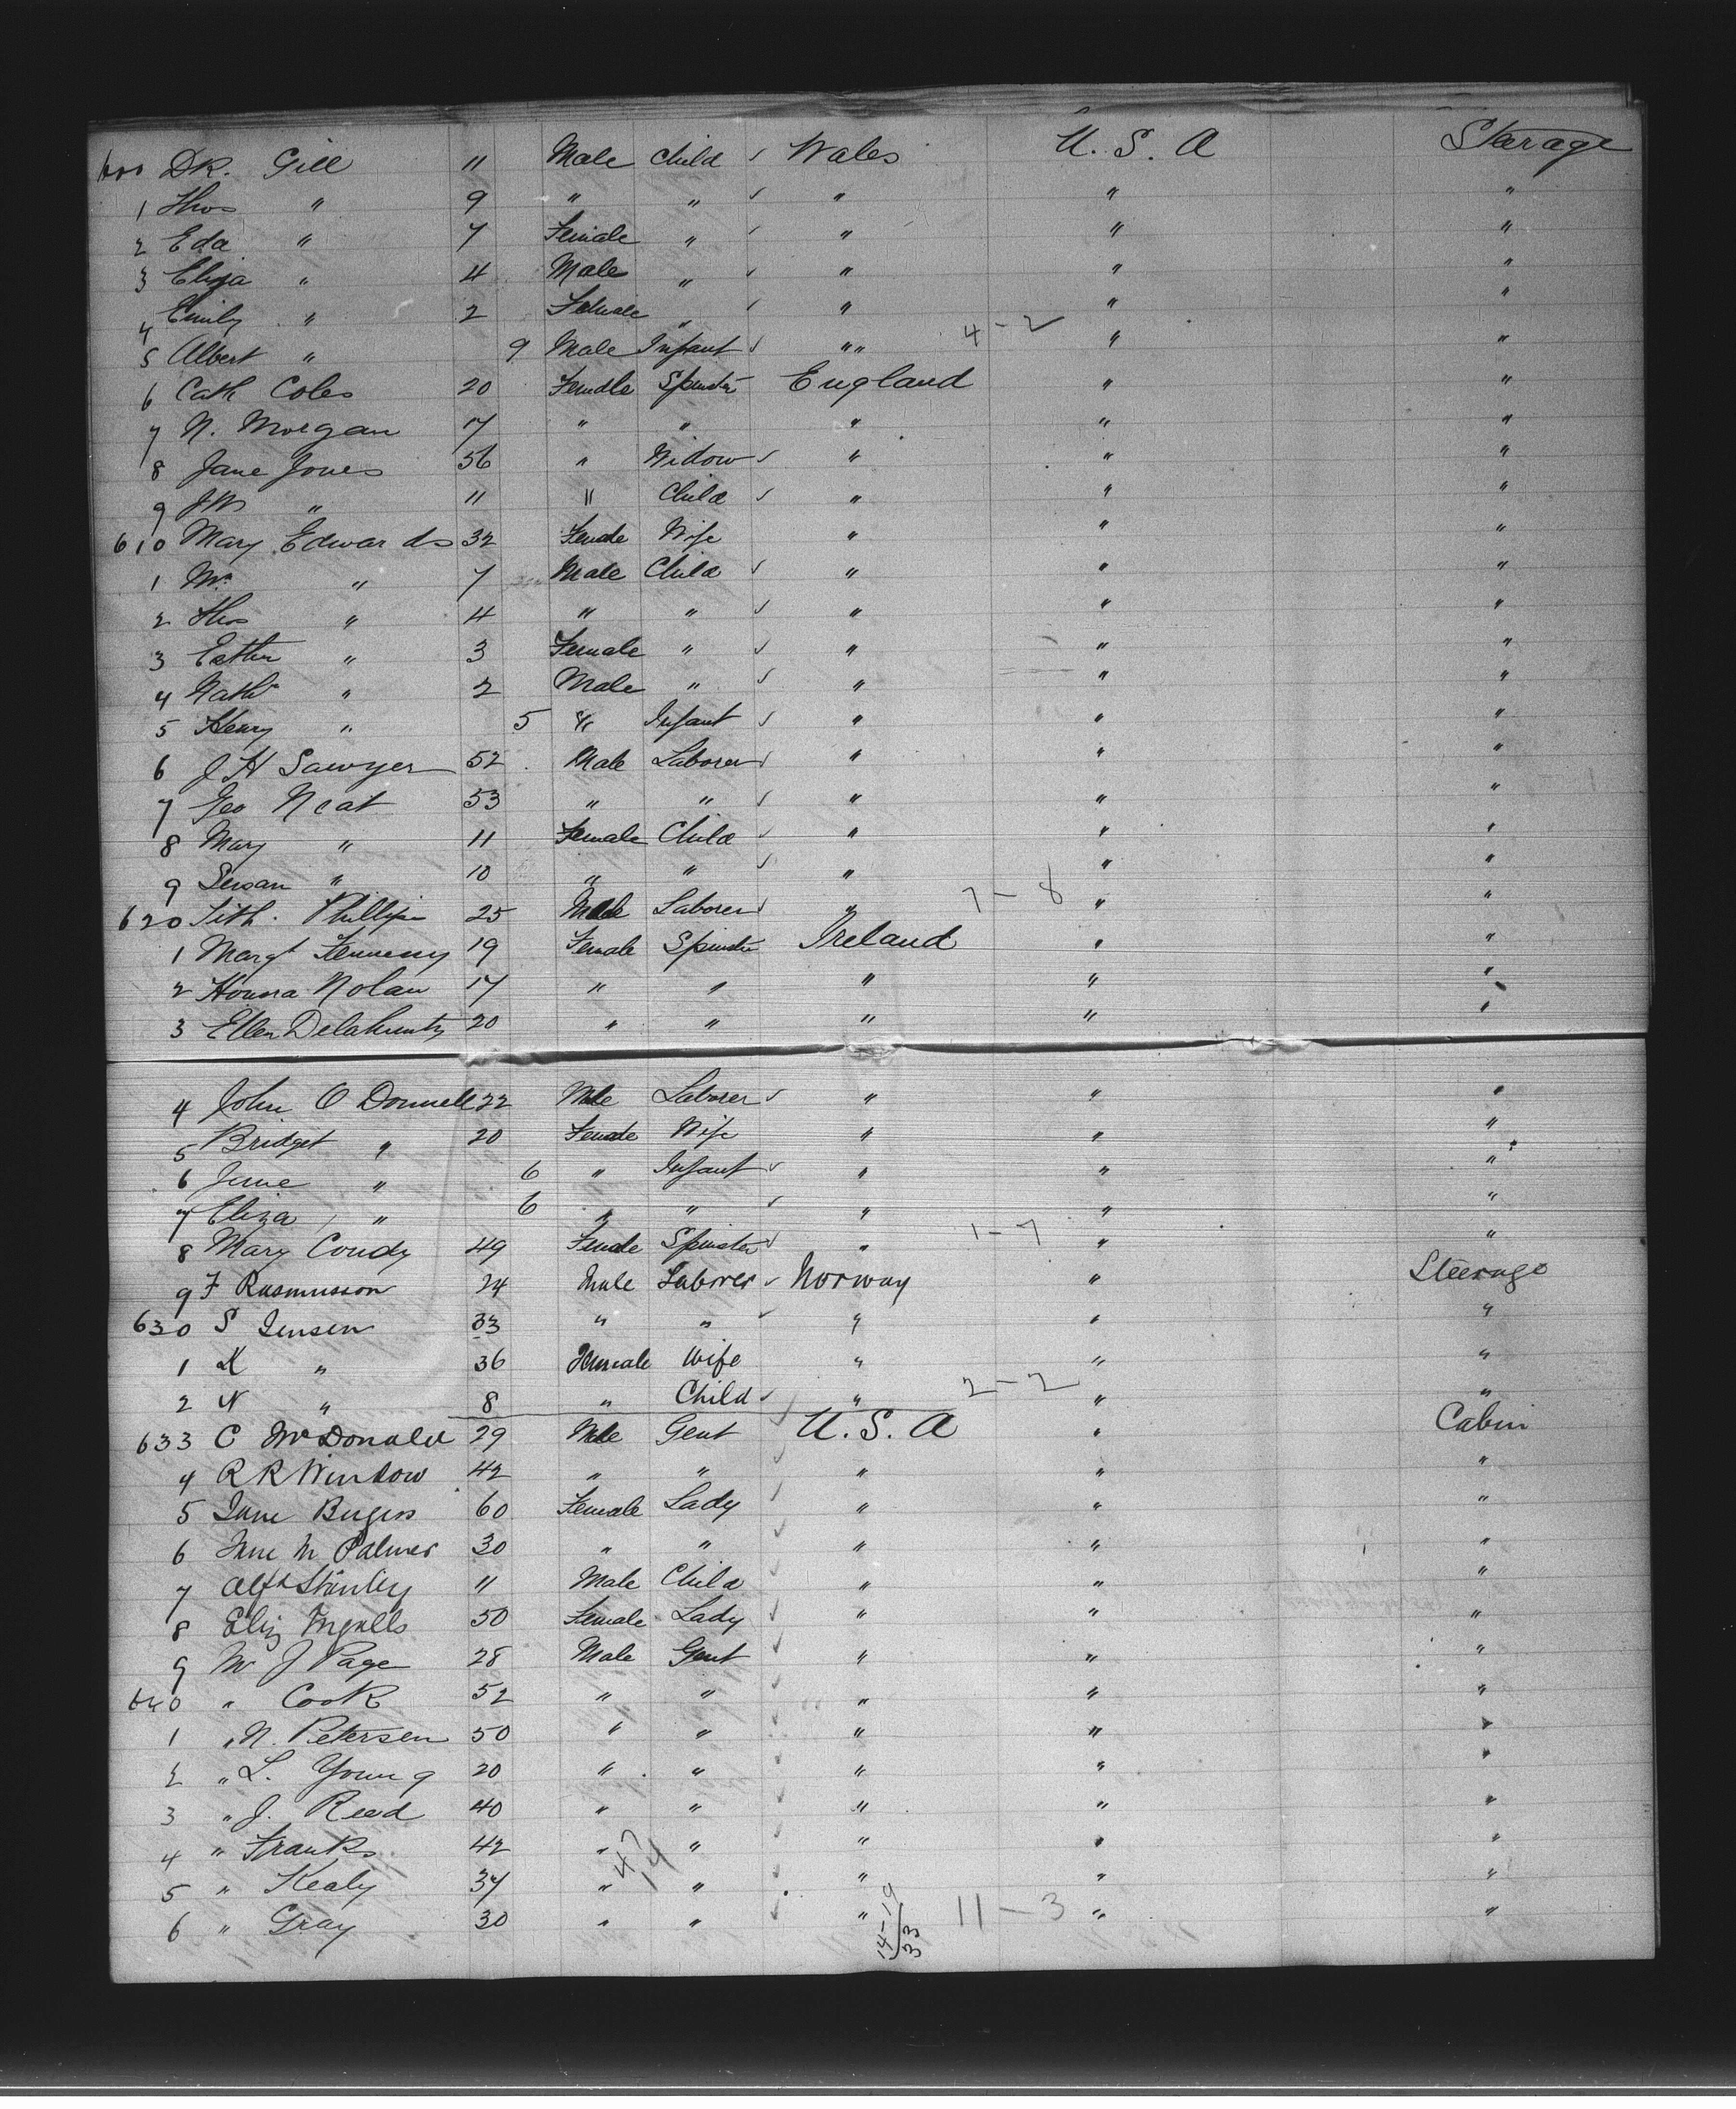 600 DK. Gill 11 Male Child ✓ Wales U. S. A Stearage
1 Thos " 9 " " ✓ " " "
2 Eda " 7 Female " ✓ " " "
3 Eliza " 4 Male " ✓ " " "
4 Emily " 2 Female " ✓ " " "
5 Albert " 9 Male Infant ✓ "" 4-2 " "
6 Cath Coles 20 Female Spinster England " "
7 N. Morgan 17 " " " " "
8 Jane Jones 56 " Widow ✓ " " "
9 " 11 " Child ✓ " " "
610 Mary Edwards 32 Female Wife " " "
1 Wm " 7 Male Child ✓ " " "
2 Thos " 4 " " ✓ " " "
3 Esther " 3 Female " ✓ " " "
4 Nathl " 2 Male " ✓ " " "
5 Henry " 5 " Infant ✓ " " "
6 J H Sawyer 52 Male Laborer ✓ " " "
7 Geo Neat 53 " " ✓ " " "
8 Mary " 11 Female Child ✓ " " "
9 Susan " 10 " " ✓ " " "
620 Phillips 25 Male Laborer ✓ " 7-8 " "
1 Margt Hennessy 19 Female Spinster Ireland " "
2 Honora Nolan 17 " " " " "
3 Ellen Delahunty 20 " " " " "
4 John O Donnell 22 Male Laborer ✓ " " "
5 Bridget " 20 Female Wife " " "
6 " 6 " Infant ✓ " " "
7 Eliza " 6 " " ✓ " " "
8 Mary Condy 49 Female Spinster ✓ " 1-7 " "
9 F Rasmusson 24 Male Laborer ✓ Norway " Steerage
630 S Jensen 33 " " ✓ " " "
1 K " 36 Female Wife " " "
2 N " 8 " Child ✓ " 2-2 " "
633 C McDonald 29 Male Gent ✓ U. S. A " Cabin
4 R R Winslow 42 " " ✓ " " "
5 Jane Burgess 60 Female Lady ✓ " " "
6 Jane M Palmer 30 " " ✓ " " "
7 Alfd Stanley 11 Male Child " " "
8 Eliz Ingalls 50 Female Lady ✓ " " "
9 Mr J Page 28 Male Gent ✓ " " "
640 " Cook 52 " " ✓ " " "
1 " N. Petersen 50 " " ✓ " " "
2 " L. Young 20 " " ✓ " " "
3 " J. Reed 40 " " ✓ " " "
4 " Franks 42 " " ✓ " " "
5 " Kealy 37 " " ✓ " " "
6 " Gray 30 " " ✓ " 11-3 " "
47
14
14-19
33